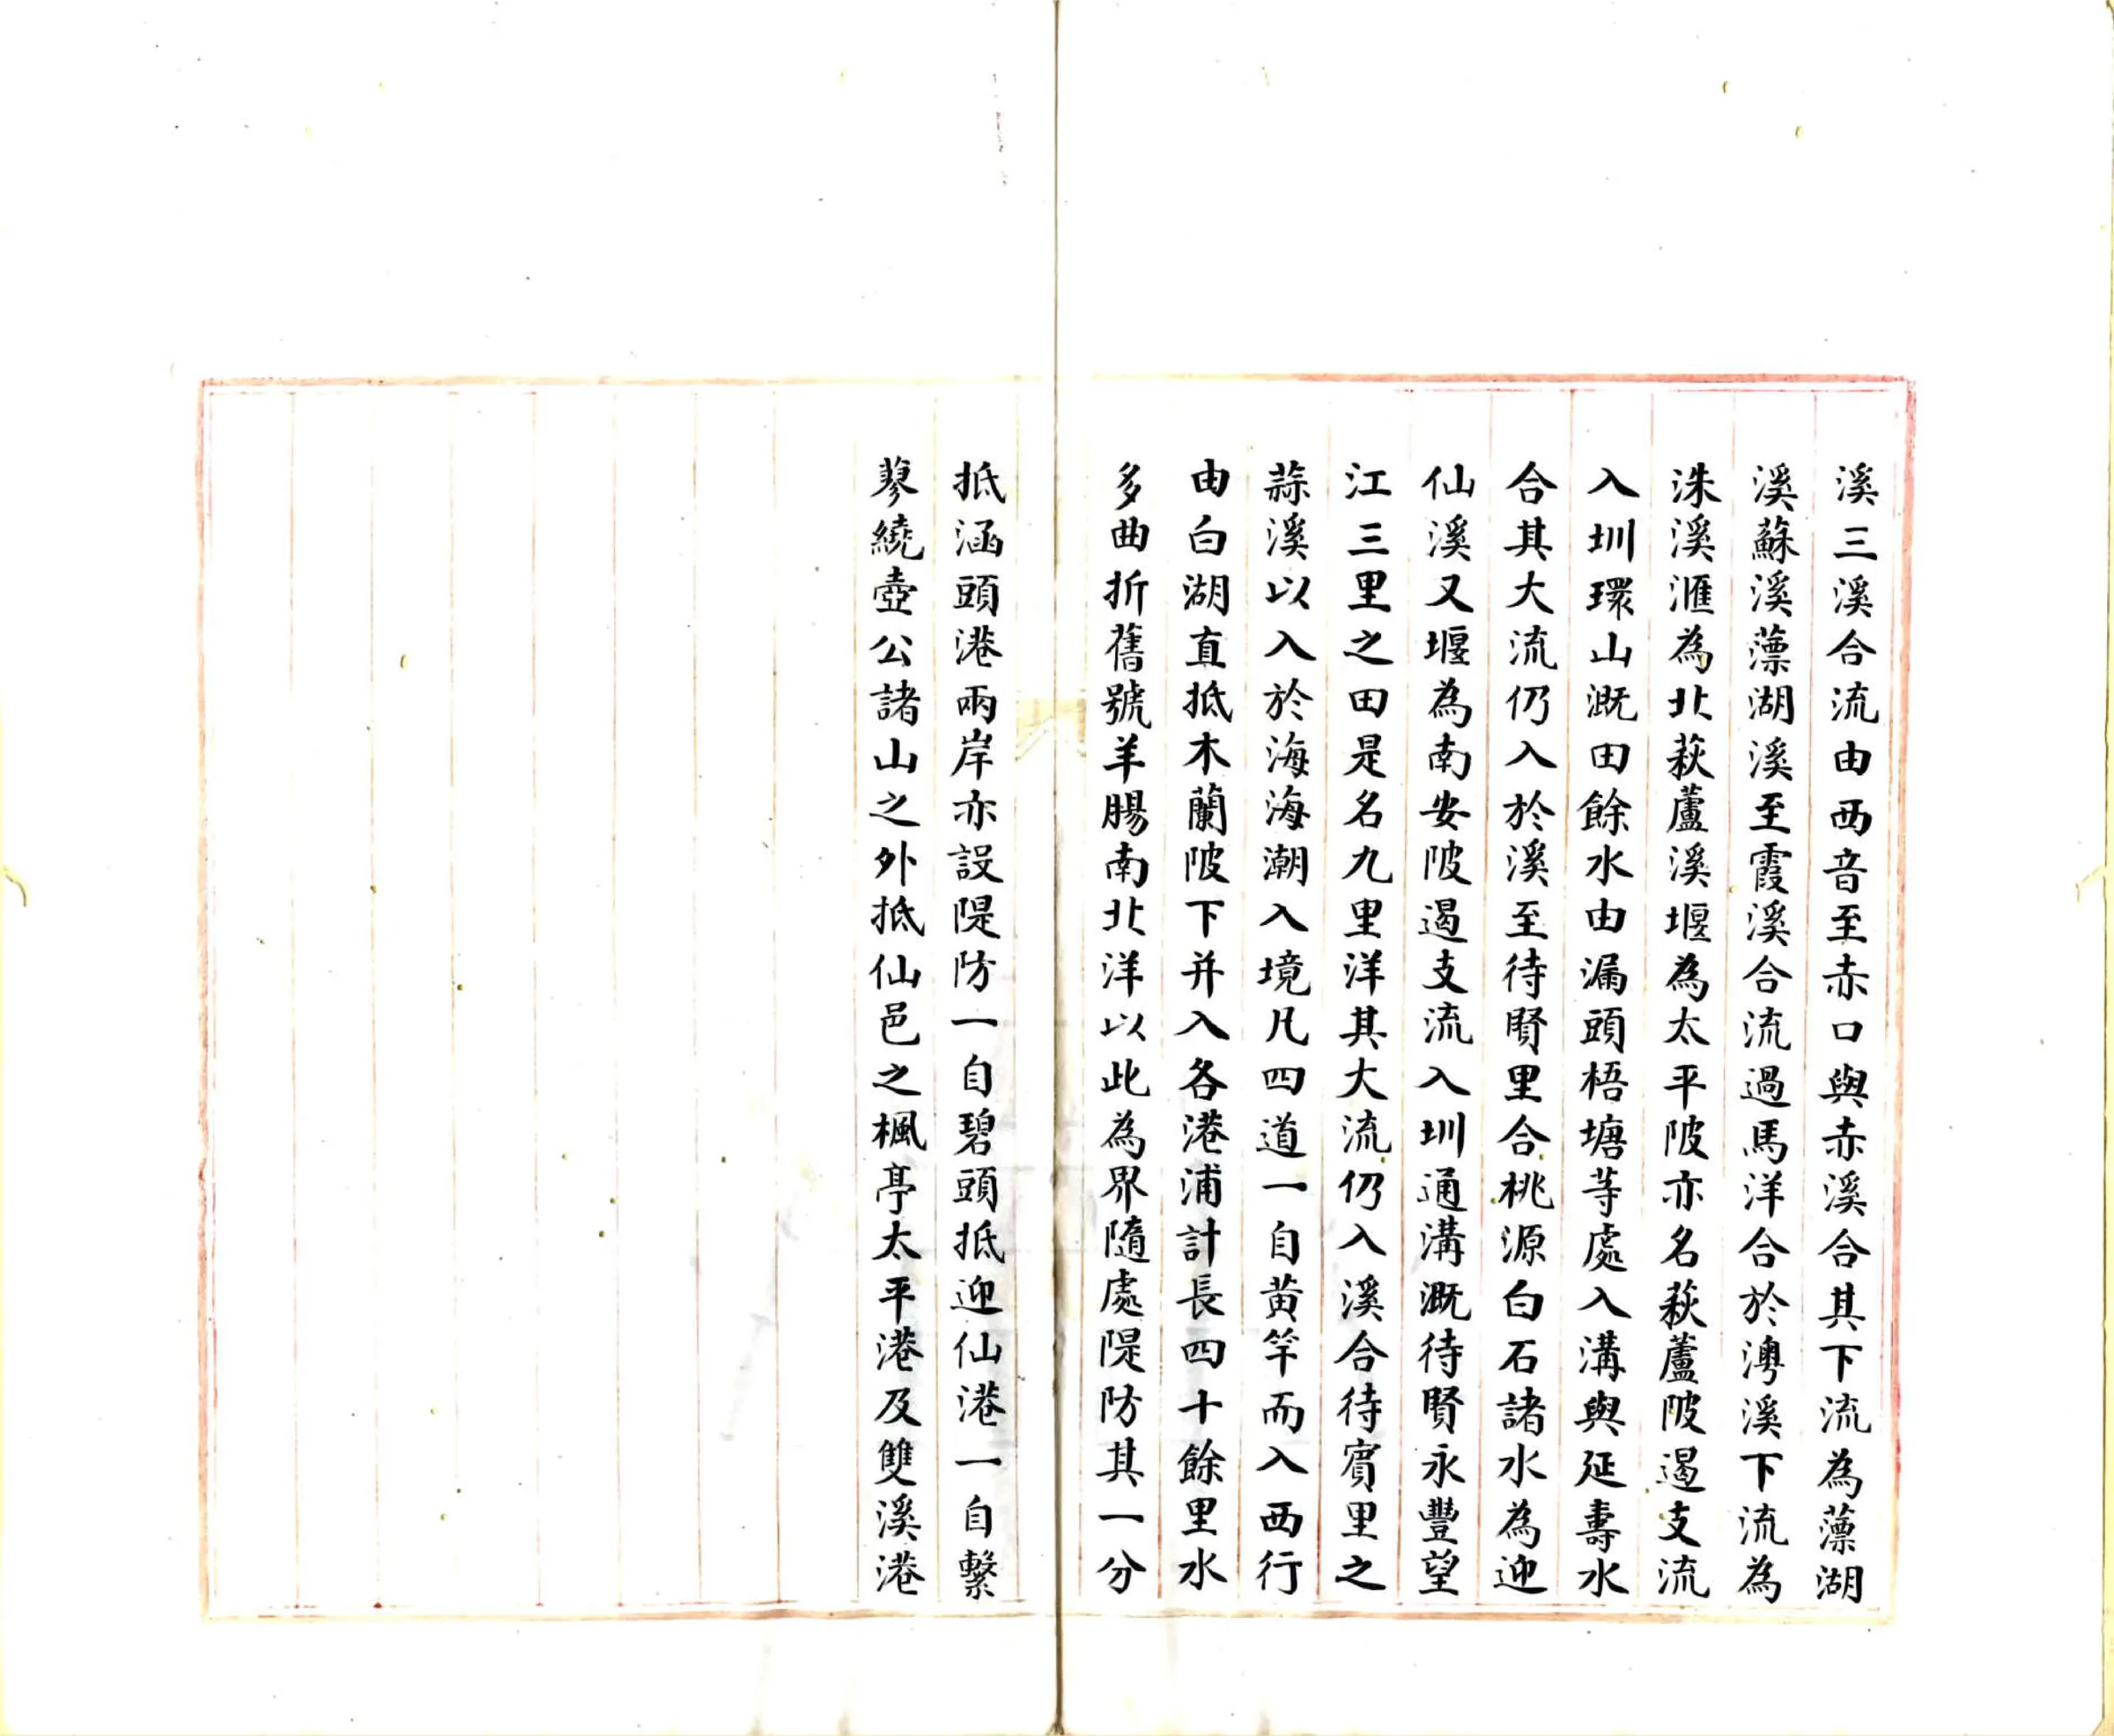 溪三溪合流由西音至赤口與赤溪合其下流為藻湖
溪蘇溪藻湖溪至霞溪合流過馬洋合於澳溪下流為
洙溪滙為北萩蘆溪堰為太平陂亦名萩蘆陂遏支流
入圳環山溉田餘水由漏頭梧塘等處入溝與延壽水
合其大流仍入於溪至待賢里合桃源白石諸水為迎
仙溪又堰為南安陂遏支流入圳通溝溉待賢永豐望
江三里之田是名九里洋其大流仍入溪合待賓里之
蒜溪以入於海海潮入境凡四道一自黄竿而入西行
由白湖直抵木蘭陂下并入各港浦計長四十餘里水
多曲折舊號羊腸南北洋以此為界隨處隄防其一分
抵涵頭港兩岸亦設隄防一自碧頭抵迎仙港一自繫
蓼繞壺公諸山之外抵仙邑之楓亭太平港及雙溪港